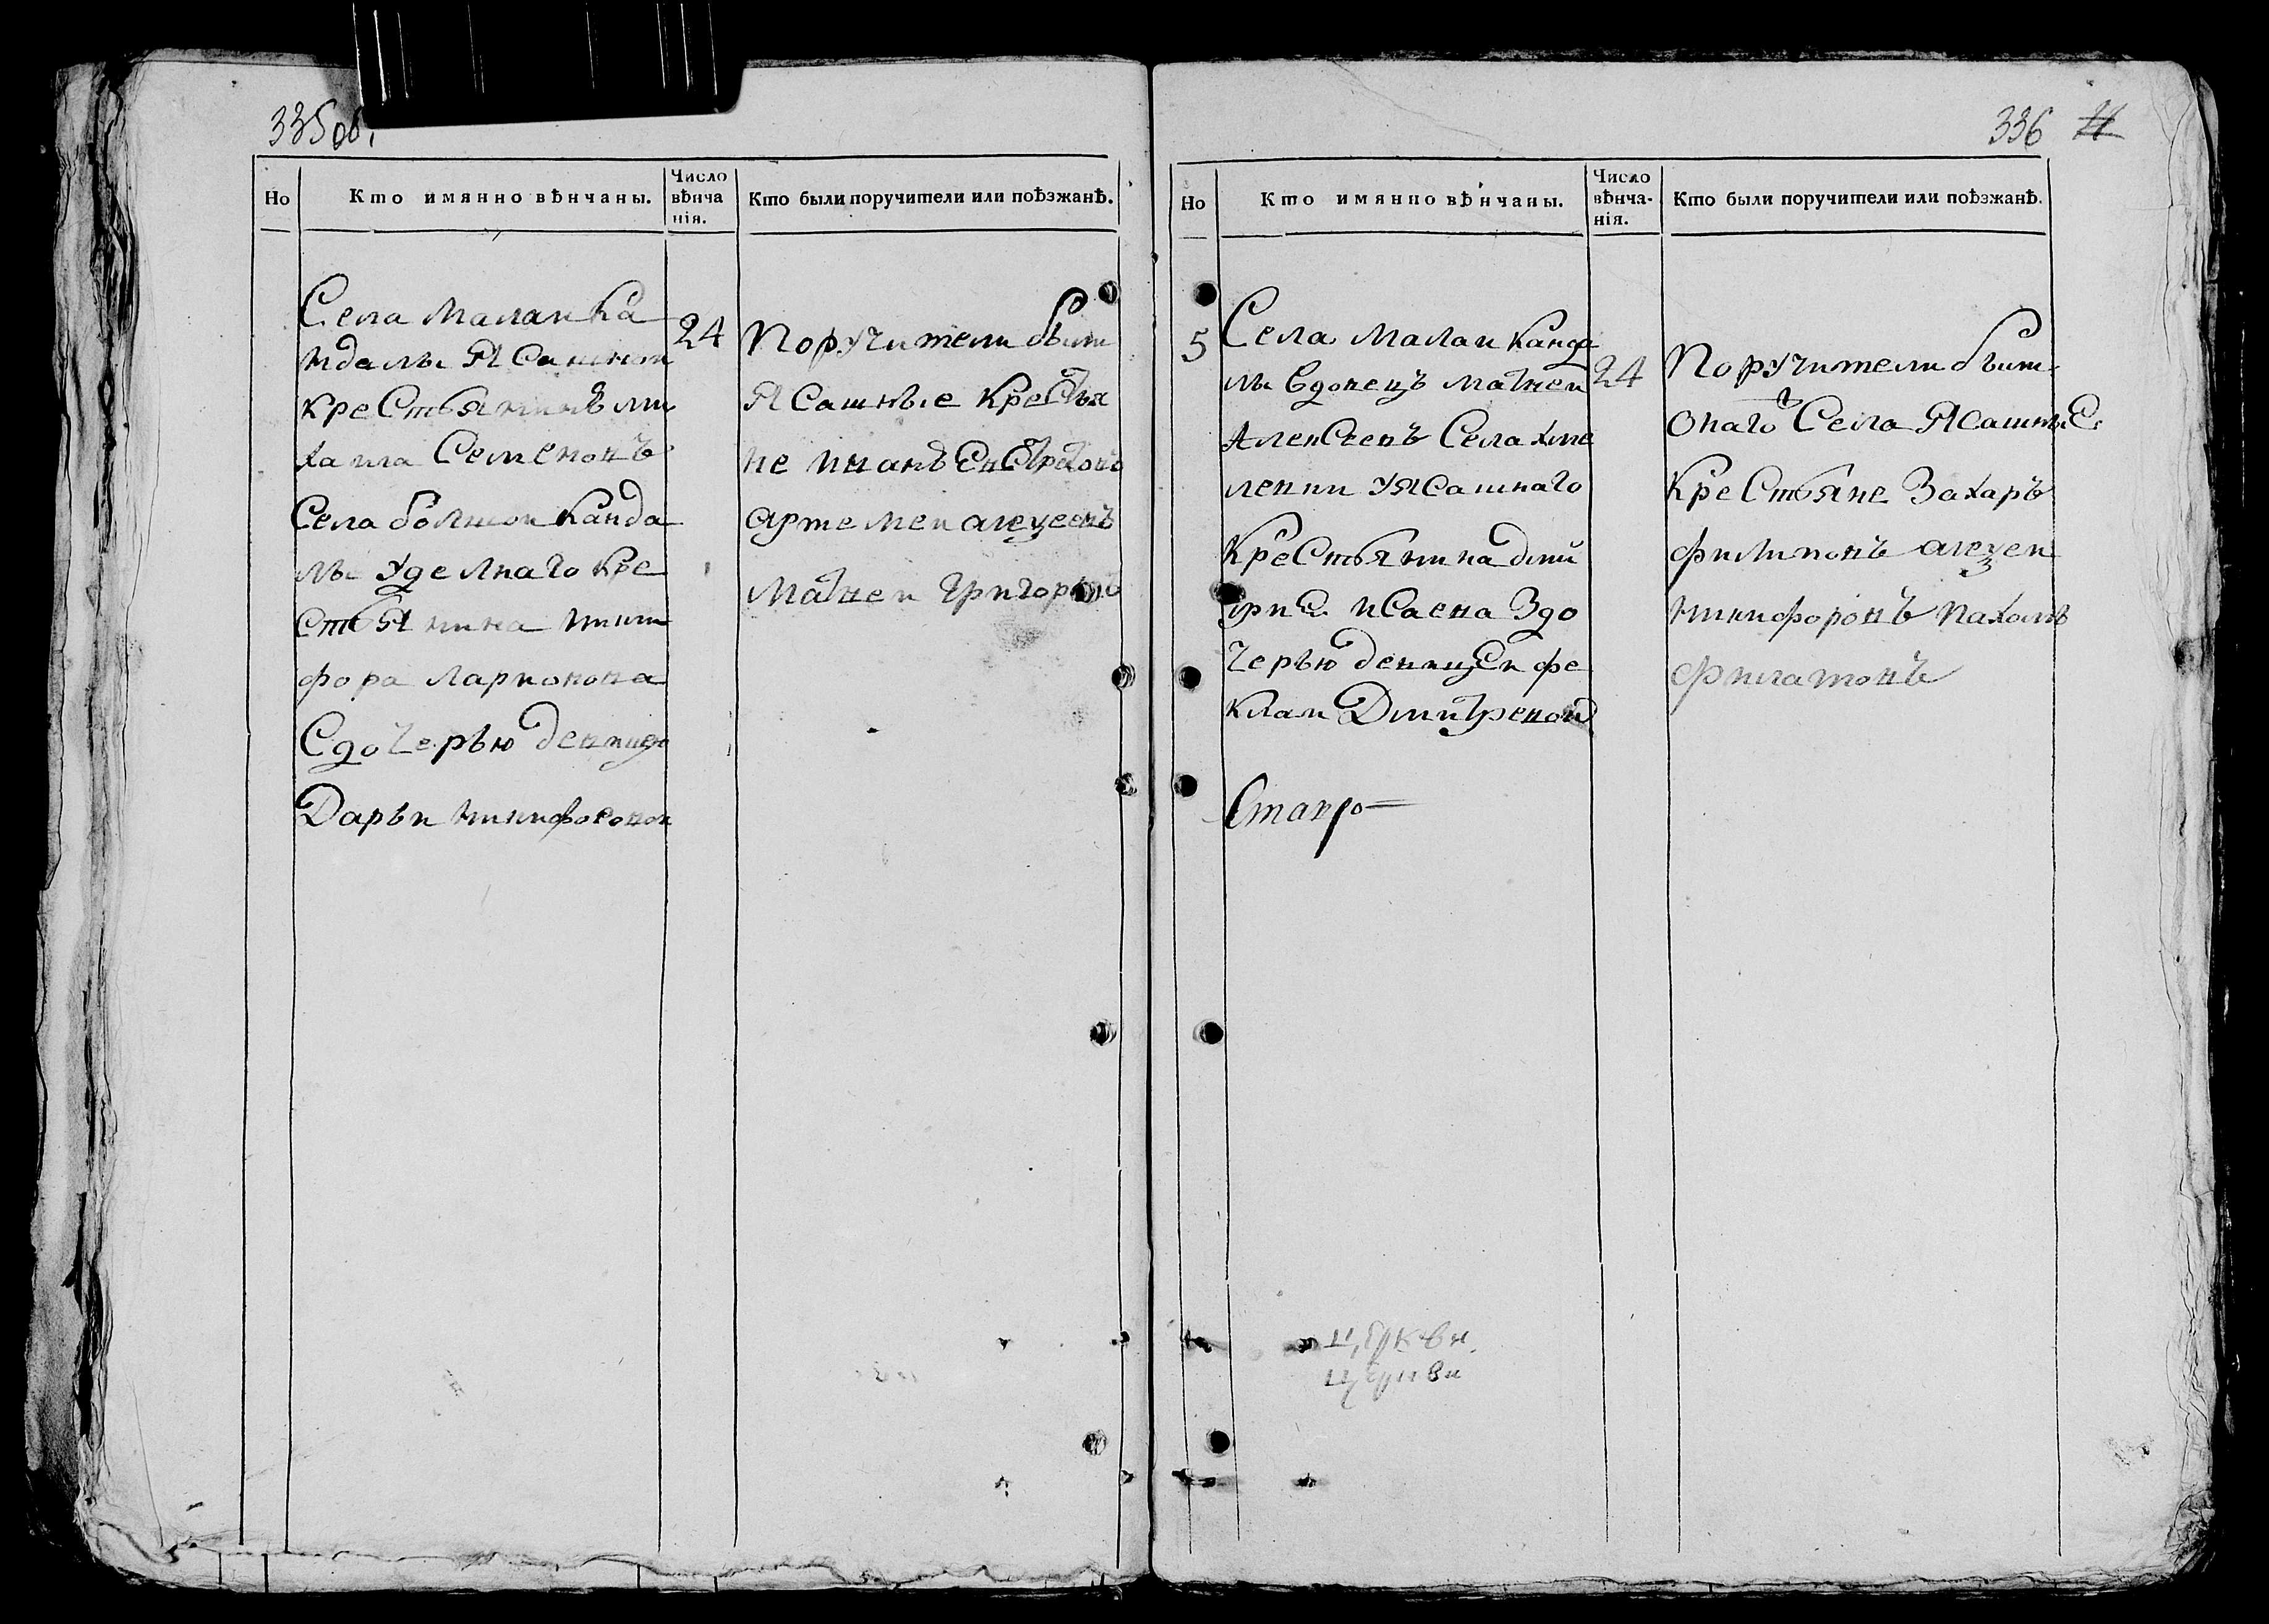 335 об.
Но
Кто имянно вѣнчаны.
Число
вѣнча
нія.
Кто были поручители или поѣзжанѣ.
Села Малаи Ка
ндалы Ясашнои
крестьянинъ ми
хаила Семеновъ
Села болшои Канда
лы Уделнаго кре
стьянина ники
фора Ларионова
Сдочерью девицею
Дарьи Никифоровои
24
Поручители были
Ясашные Кресьтья
не Иванъ Евстратовъ
Артемеи алеѯеевъ
Матвеи Григорьевъ
336
Но
Кто имянно вѣнчаны.
Число
вѣнча-
нія.
Кто были поручители или поѣзжанѣ.
5
Села Малаи Канда
лы вдовецъ Матвеи
Алексеевъ Села хме
левки Уясашнаго
Крестьянина дми
трие Исаева Здо
черью девицеи фе
клаи Дмитревои
24
Поручители были
онаго Села Ясашные
Крестьяне Захаръ
филиповъ алеѯеи
никифоровъ пахомъ
филатовъ
Ставро=
церкви
церкви